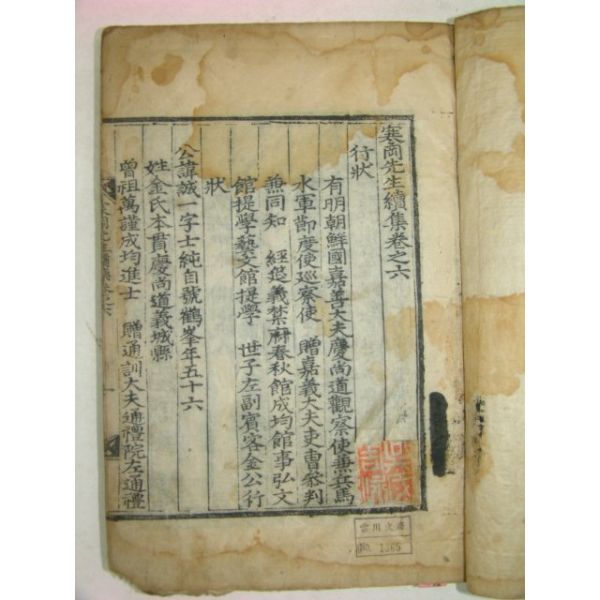 寒岡先生續集卷之六
行狀
有明朝鮮國嘉善大夫慶尙道觀察使兼兵馬
水軍節度使巡察使 贈嘉義大夫吏曹參判
兼同知 經筵義禁府春秋館成均館事弘文
館提學藝文館提學 世子左副賓客金公行
狀
公諱誠一字士純自號鶴峯年五十六
姓金氏本貫慶尙道義城縣
曾祖萬謹成均進士 贈通訓大夫通禮院左通禮
No. 1365